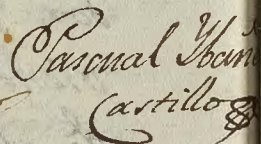 Pascual Ybañ
Castillo